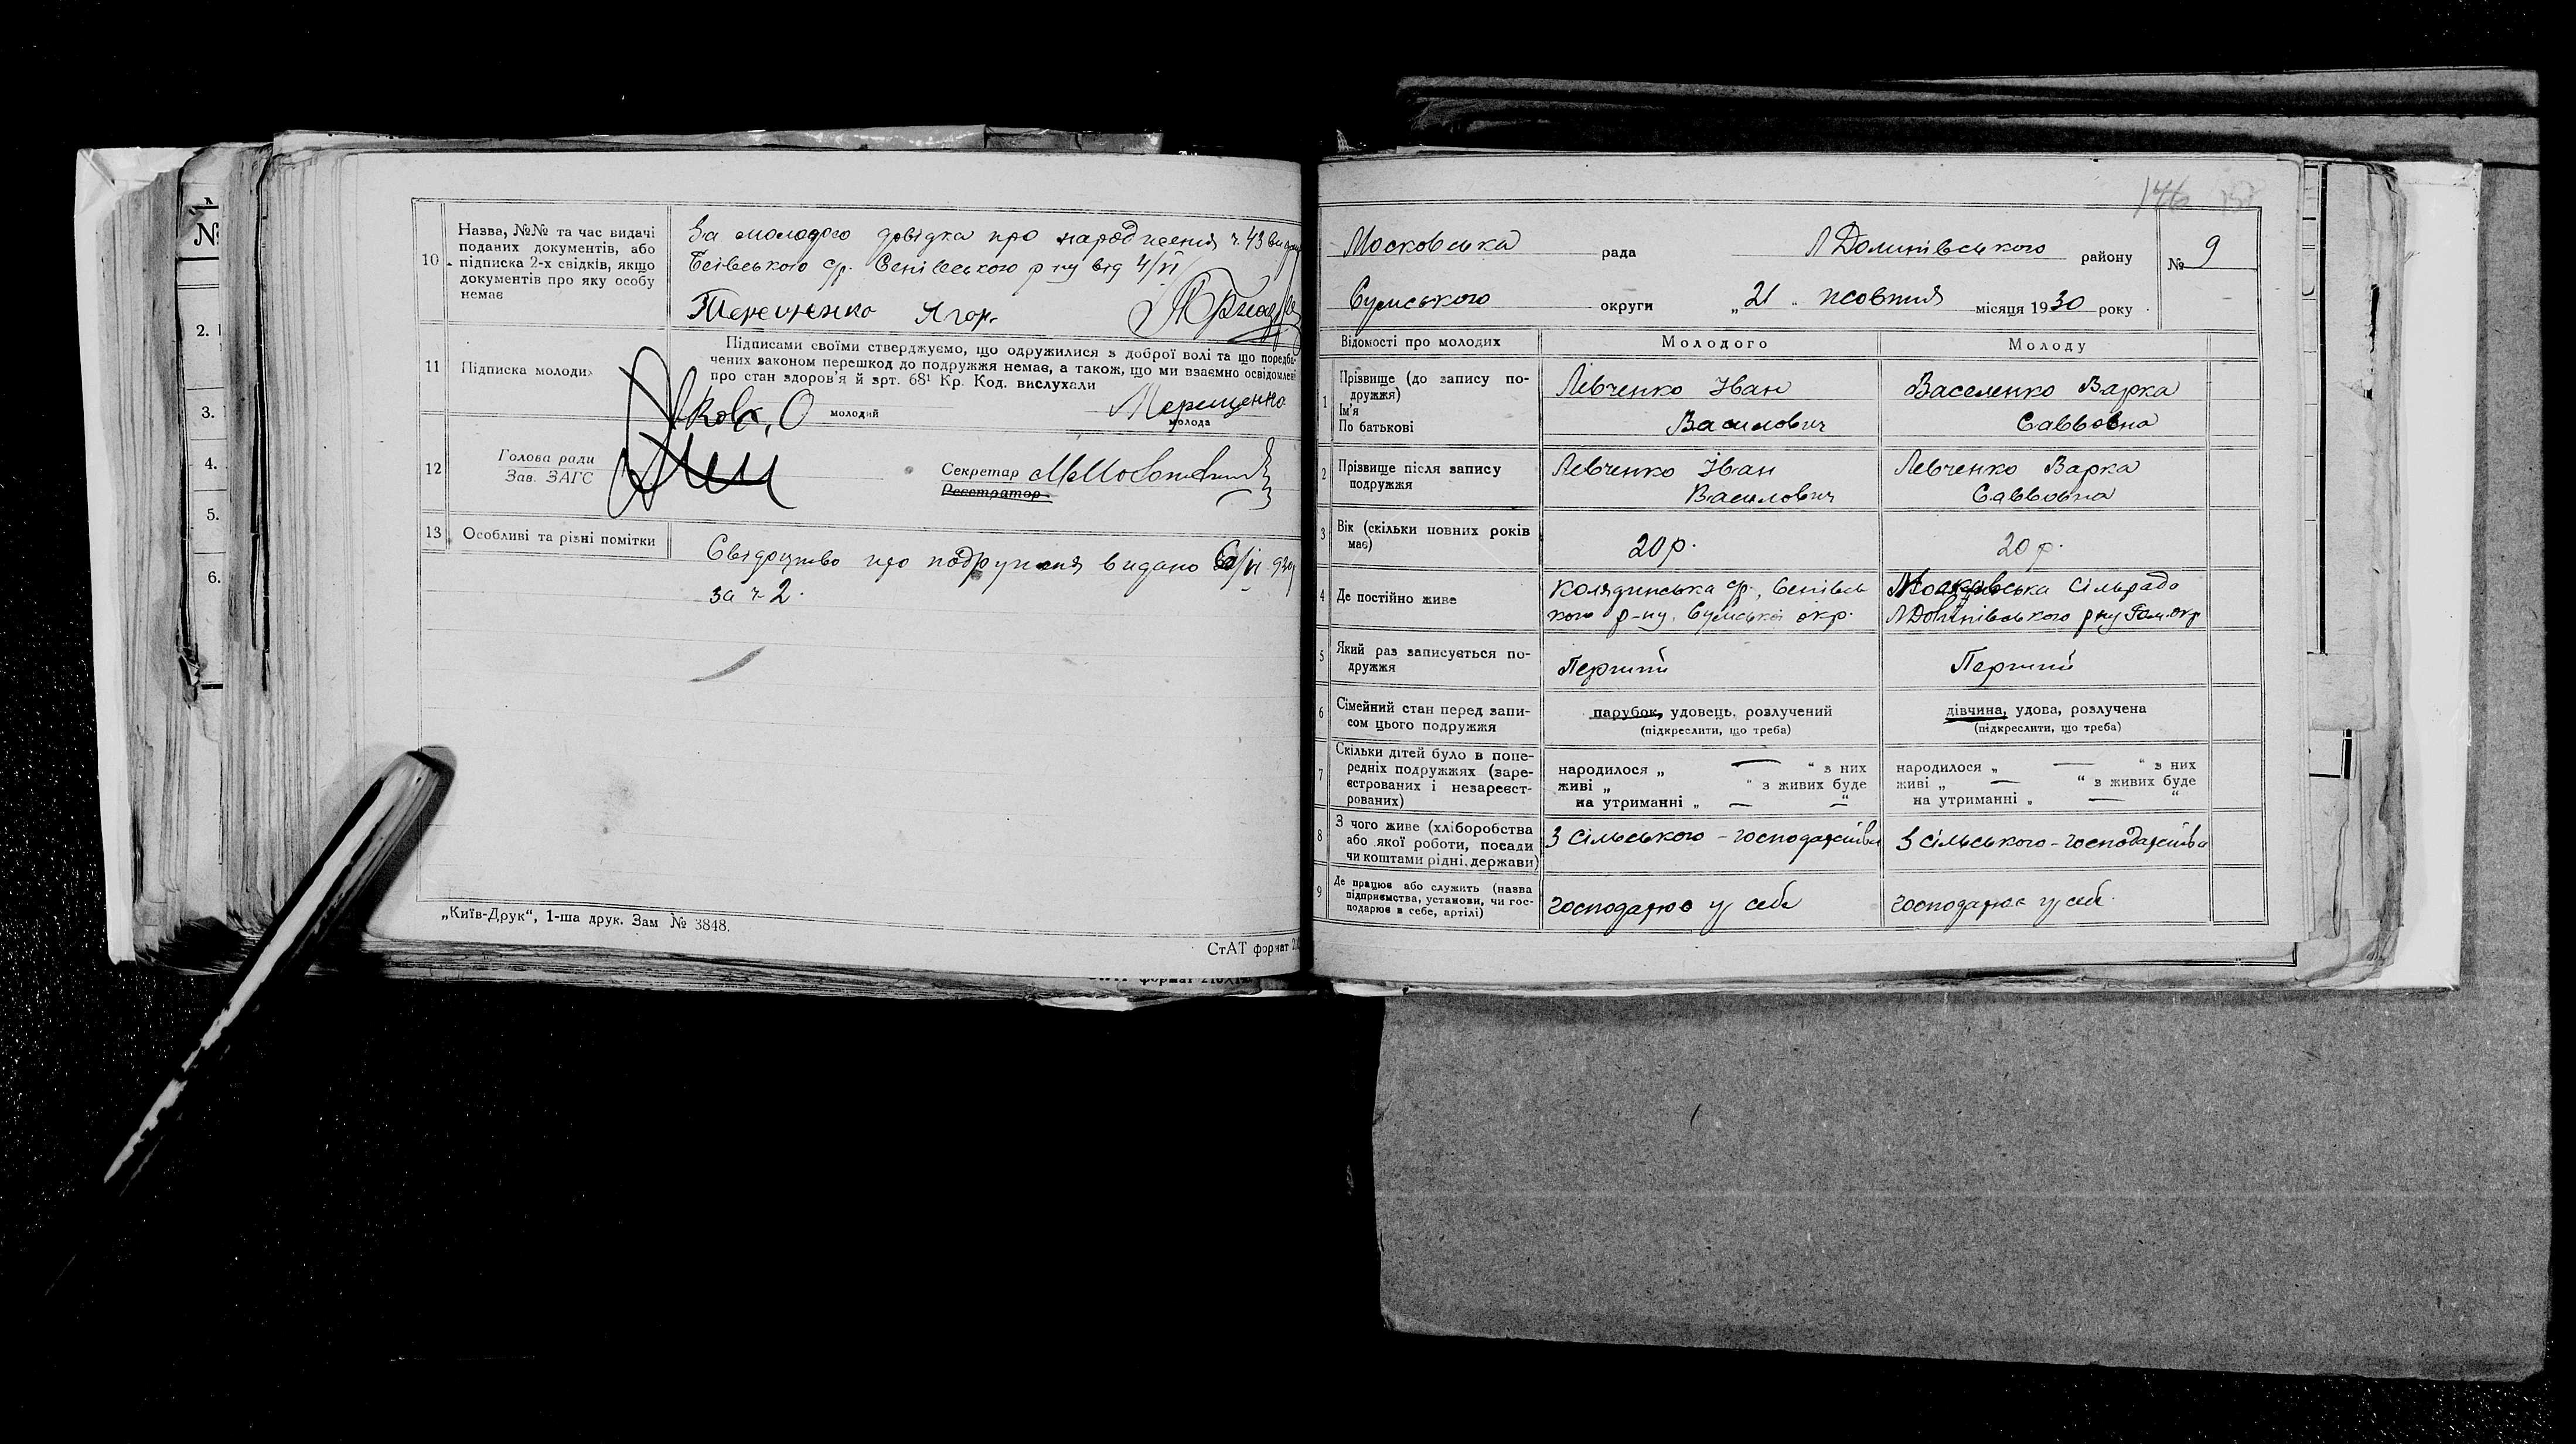 №
2.
3.
4.
5.
6.
10
Назва, №№ та час видачі
поданих документів, або
підписка 2-х свідків, якщо
документів про яку особу
немає
За молодого довідка про народження ч. 43 видана
Беївського с/р. Сенівського р-ну від 4/VI
Терещенко Ягор.
11
Підписка молодих
Підписами своїми стверджуємо, що одружилися з доброї волі та що передба-
чених законом перешкод до подружжя немає, а також, що ми взаємно освідомлені
про стан здоров'я й арт. 68¹ Кр. Код. вислухали
молодий
Терещенко
молода
12
Голова ради
Зав. ЗАГС
Секретар
Реєстратор
13
Особливі та різні помітки
Свідоцтво про подружжя видано
за ч 2.
„Київ-Друк“, 1-ша друк. Зам № 3848.
СтАТ формат
146
Московська рада Л Долинівського району
№ 9
Сумського округи „21“ жовтня місяця 1930 року
Відомості про молодих
Молодого
Молоду
1
Прізвище (до запису по-
дружжя)
Ім'я
По батькові
Левченко Іван
Василович
Васеленко Варка
Саввовна
2
Прізвище після запису
подружжя
Левченко Іван
Василович
Левченко Варка
Саввовна
3
Вік (скільки повних років
має)
20 р.
20 р.
4
Де постійно живе
Колядинська с/р., Сенівсь
кого р-ну, Сумської окр.
Московська Сільрада
Л Долинівського р ну окр
5
Який раз записується по-
дружжя
Перший
Перший
6
Сімейний стан перед запи-
сом цього подружжя
парубок, удовець, розлучений
(підкреслити, що треба)
дівчина, удова, розлучена
(підкреслити, що треба)
7
Скільки дітей було в попе-
редніх подружжях (заре-
єстрованих і незареєст-
рованих)
народилося „ — “ з них
живі „ “ з живих буде
на утриманні „ — “
народилося „ — “ з них
живі „ — “ з живих буде
на утриманні „ — “
8
З чого живе (хліборобства
або якої роботи, посади
чи коштами рідні, держави)
З сільського-господарства
З сільського-господарства
9
Де працює або служить (назва
підприємства, установи, чи гос-
подарює в себе, артілі)
господарює у себе
господарює у себе.